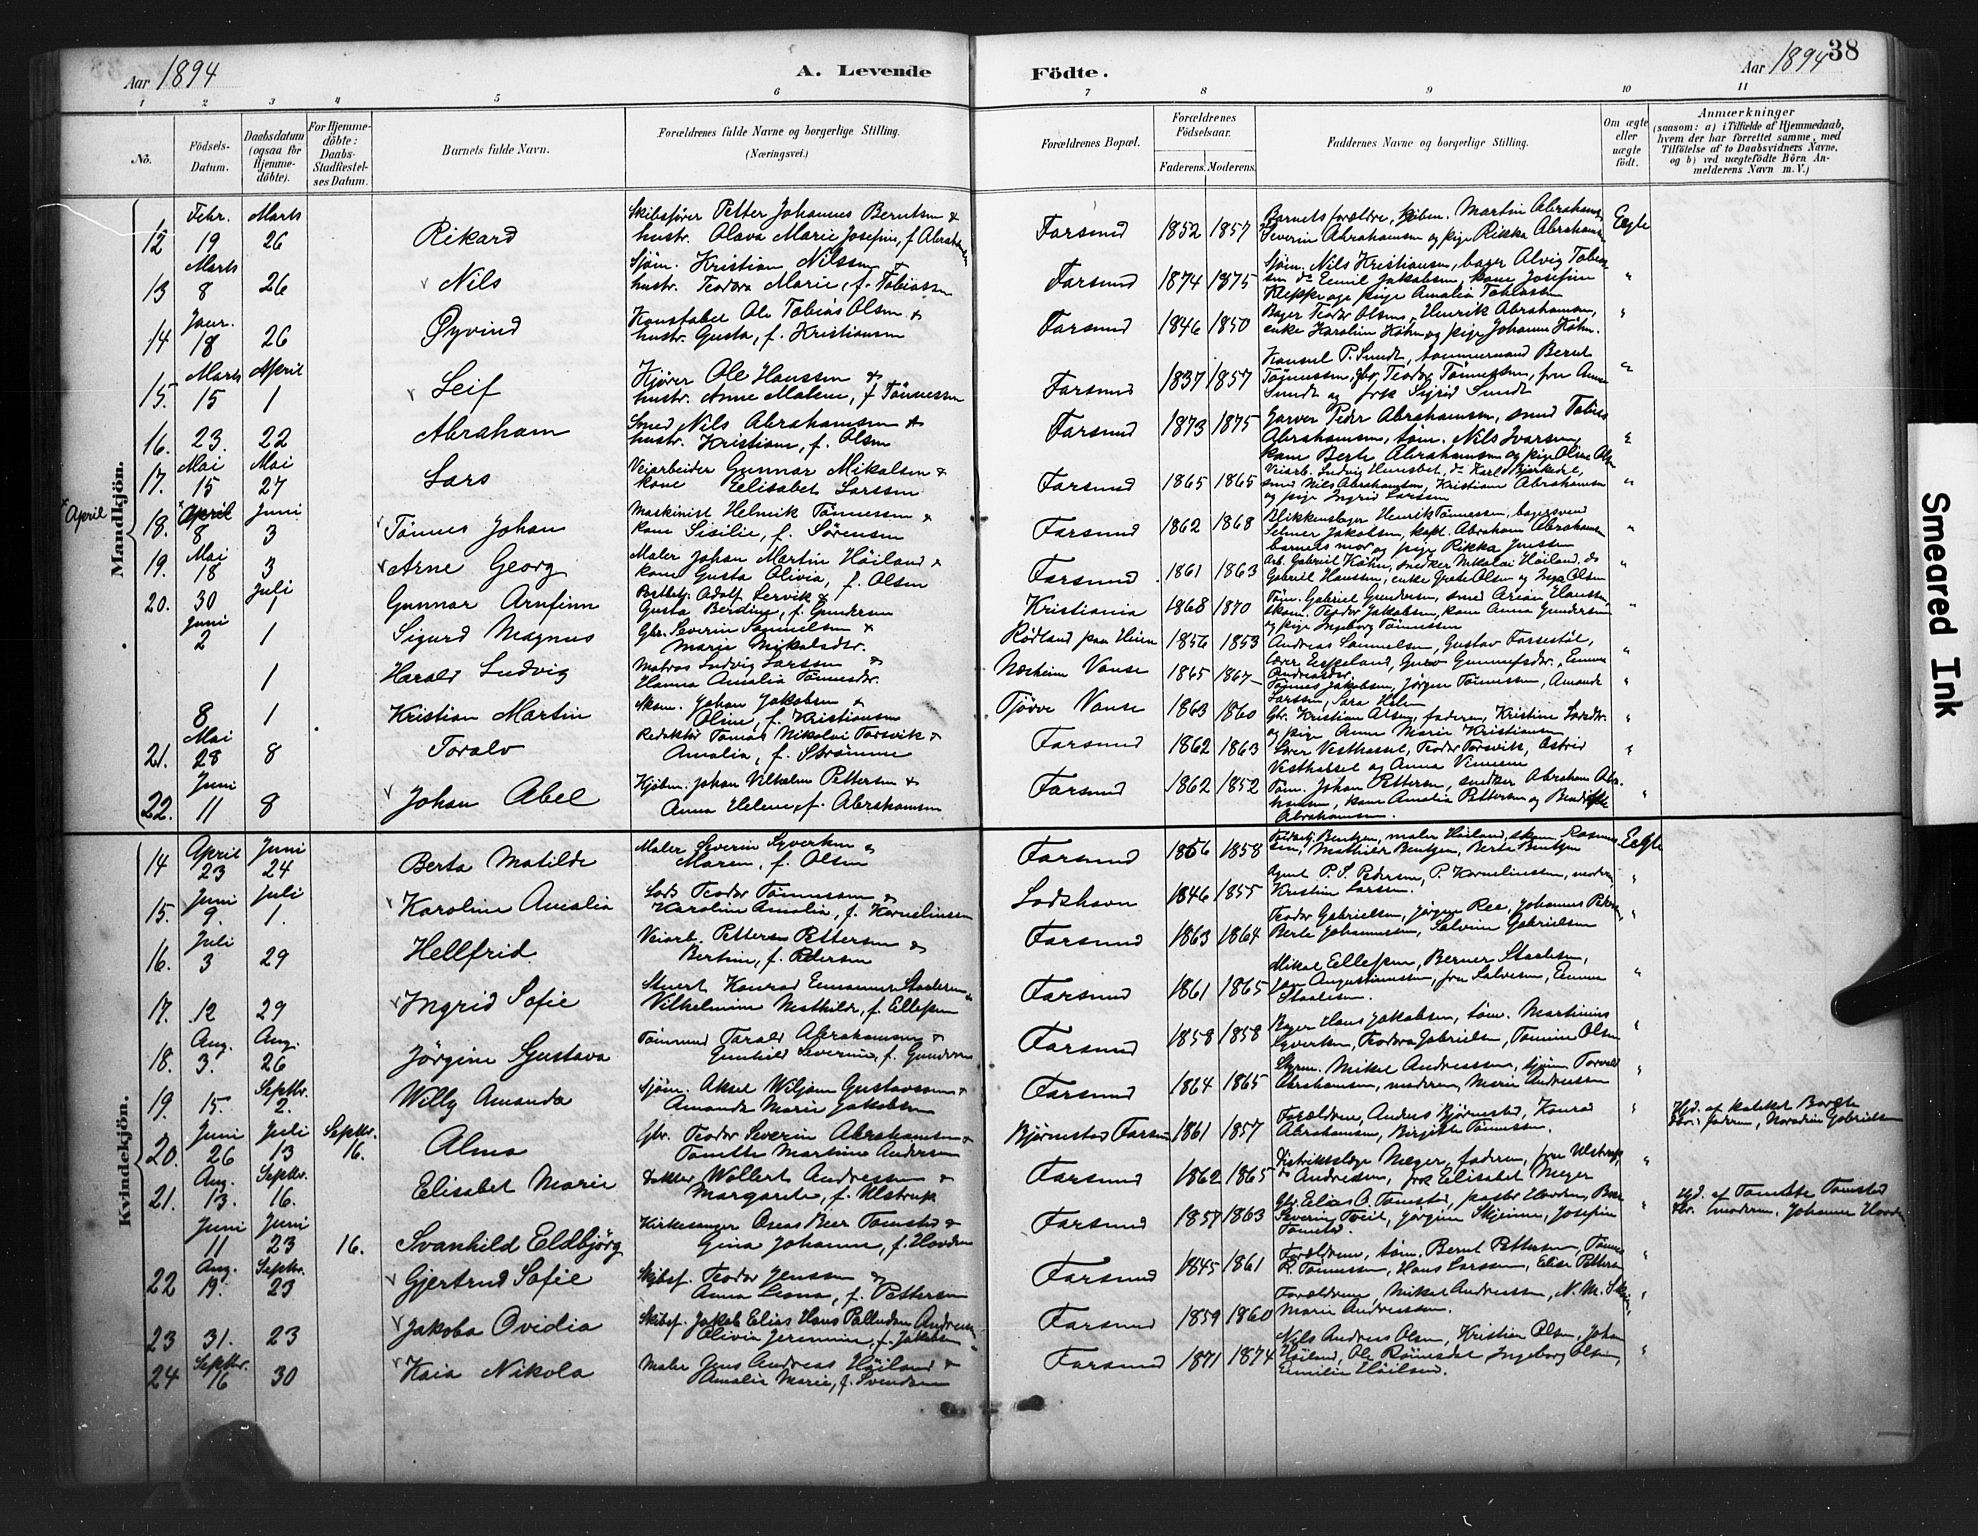 Aar 1894
A. Levende Födte.
Aar 1894
38
1 2 3 4 5 6 7 8 9 10 11
No.
Födsels-Datum.
Daabsdatum (ogsaa for Hjemme-döbte).
For Hjemme-döbte: Daabs-Stadfæstel-ses Datum.
Barnets fulde Navn.
Forældrenes fulde Navne og borgerlige Stilling. (Næringsvei.)
Forældrenes Bopæl.
Forældrenes Födselsaar. Faderens. Moderens.
Faddernes Navne og borgerlige Stilling.
Om ægte eller uægte födt.
Anmærkninger (saasom: a) i Tilfælde af Hjemmedaab, hvem der har forrettet samme, med Tilföielse af to Daabsvidners Navne, og b) ved uægtefödte Börn An-melderens Navn m. V.)
Mandkjön.
12 Febr. 19 Marts 26 Rikard Skibsfører Petter Johannes Berntsen & hustr. Olava Marie Josefine, f. Farsund 1852 1857 Barnets forældre, Martin Severin Abrahamsen og pige Rikka Egte
13 Marts 8 26 Nils Sjöm. Kristian Nilssen & hustr. Teodora Marie, f. Tobiassen Farsund 1874 1875 Sjöm. Nils Kristiansen, bager Alvig Emil Jakobsen, kone Josefine og pige Amalia "
14 Janur. 18 26 Øyvind Konstabel Ole Tobias Olsen & hustr. Gusta, f. Kristiansen Farsund 1846 1850 Bager Teodor Olsen, Henrik Abrahamsen, enke Karoline Höhn og pige Johanne Höhn. "
15. Marts 15 April 1 Leif Ole Hanssen & hustr. Anne Malene, f. Tönnessen Farsund 1837 1857 Konsul P. Sundt, tømmermand Bernt Tönnessen, Teodor Tönnessen, fru Anna Sundt og frk Sigrid Sundt "
16. 23. 22 Abraham Smed Nils Abrahamsen & hustr. Kristiane, f. Olsen Farsund 1873 1875 Garver Peder Abrahamsen, smed Tobias Abrahamsen, töm. Nils Ivarsen, kone Berte Abrahamsen og pige Oline Olsen "
17. Mai 15 Mai 27 Lars Veiarbeider Gunnar Mikalsen & kone Elisabet Larssen Farsund 1865 1865 Veiarb. Ludvig do Karl Bjerkedal, smed Nils Abrahamsen, Kristiane Abrahamsen og pige Ingrid Larssen "
* April 18. April 8 Juni 3 Tönnes Johan Maskinist Helmik Tönnessen & kone Sisilie, f. Sørensen Farsund 1862 1868 Blikkenslager Henrik Tönnessen, bagersvend Selmer Jakobsen, kapt. Abraham Abrahamsen barnets mor og pige Rikka "
19. Mai 18 3 Arne Georg Maler Johan Martin Höiland & kone Gusta Olivia, f. Olsen Farsund 1861 1863 Arb. Gabriel Höhn, snedker Nikolai Höiland, do Gabriel Hanssen, enke Grete Olsen og Inga Olsen "
20. 30 Juli 1 Gunnar Arnfinn Adolf Lervik & Gusta Berdine, f. Gundersen Kristiania 1868 1870 Töm. Gabriel Gundersen, smed Adrian Hanssen, skom. Teodor Jakobsen, kone Anna Gundersen og pige Ingeborg Tönnessen "
Juni 2 1 Sigurd Magnus Gbr. Severin Samuelsen & Marie Mikalsdtr. Rødland paa Heien 1856 1853 Andreas Samuelsen, Gustav "
1 Harald Ludvig Matros Ludvig Larssen & Hanna Amalia Tönnesdtr. Næsheim Vanse 1865 1867 Tönnes Jakobsen, Jörgen Tönnessen, Amanda Larssen, Sara "
8 1 Kristian Martin Johan Jakobsen & Oline, f. Kristiansen Tjövve Vanse 1863 1860 Gbr. Kristian Olsen, faderen, Kristine og pige Anne Marie Kristiansen "
21. Mai 28 8 Toralv Redaktör Tomas Nikolai Torsvik & Amalia, f. Strømme Farsund 1862 1863 Lærer Vesthassel, Teodor Torsvik, Astrid Vesthassel og Anna "
22. Juni 11 8 Johan Abel Kjöbm. Johan Vilhelm Pettersen & Anna Helene, f. Abrahamsen Farsund 1862 1852 Töm. Johan Pettersen, snedker Abraham Abrahamsen, kone Amalia Pettersen og Abrahamsen. "
Kvindekjön.
14 April 23 Juni 24 Berta Matilde Maler Severin Syvertsen & Maren, f. Olsen Farsund 1856 1858 Bentzen, maler Höiland, skom. Mathilde Bentzen, Berta Bentzen Egte
15. Juni 9. Juli 1. Karoline Amalia Lods Teodor Tönnessen & Karoline Amalia, f. Korneliussen Lodshavn 1846 1855 Agent P. S. Pedersen, P. Korneliussen, moderen, Kristine Larssen. "
16. Juli 3 29 Hellfrid Veiarb. Petter Pettersen & Bertine, f. Pedersen Farsund 1863 1864 Teodor Gabrielsen, Jörgen Ree, Johannes Berte Johannessen, Salvine Gabrielsen "
17. 12 29 Ingrid Sofie Stuert Konrad Emanuel Staalesen & Vilhelmine Mathilde, f. Ellefsen Farsund 1861 1865 Mikal Ellefsen, Berner Staalesen, Augustinussen, fru Salvesen, Emma Staalesen. "
18. Aug. 3. Aug. 26 Jörgine Gustava Tömmermd Tarald Abrahamsen & Gunhild Severine, f. Gundersen Farsund 1858 1858 Bager Hans Jakobsen, töm. Martinius Syvertsen, Teodora Gabrielsen, Tomine Olsen "
19. 15. Septbr. 2. Willy Amanda Sjöm. Aksel Wiljam Gustavssen & Amanda Marie Jakobsen Farsund 1864 1865 Styrm. Mikal Andreassen, sjöm. Torvald Abrahamsen, moderen, Marie Andreassen "
20. Juni 26 Juli 13 Septbr. 16. Alma Gbr. Teodor Severin Abrahamsen & Tomette Martine Andersen Bjørnestad Farsund 1861 1857 Forældrene, Anders Bjørnestad, Konrad Abrahamsen, Birgitte Tönnessen. " Hjd. af kateket faderen, Gabrielsen
21. Aug. 13. Septbr. 16. Elisabet Marie Doktor Wollert Andressen & Margarite, f. Ulstrup Farsund 1862 1865 Distriktslæge Mæger, faderen, fru Ulstrup, do Andresen, frk Elisabet Meyer "
Juni 11 Juni 23 16. Svanhild Eldbjörg Kirkesanger Oseas Beer Tomstad & Gina Johanne, f. Hovden Farsund 1857 1863 Gbr. Elias O. Tomstad, pastor Hovden, Severine Tveit, Jörgine Skjeime, Josefine Tomstad. " Hjd. af Tomine Tomstad moderen, Johanne Hovden
22 Aug. 19. Septbr. 23 Gjertrud Sofie Skibsf. Teodor Jenssen & Anna Leona, f. Pettersen Farsund 1845 1861 Forældrene, töm. Bernt Pettersen, Tönnes R. Tönnessen, Hans Larssen, Elise Pettersen "
23 31. 23 Jakoba Ovidia Skibsf. Jakob Elias Hans Palludan Andreassen & Olivia Jeremine, f. Jakobsen Farsund 1859 1860 Forældrene, Mikal Andreassen, N. M. Marie Andreassen. "
24 Septbr. 16 30 Kaia Nikola Maler Jens Andreas Höiland & Amalia Marie, f. Svendsen Farsund 1871 1874 Nils Andreas Olsen, Kristian Olsen, Johan Höiland, Ole Römesdal, Ingeborg Olsen, Emilie Höiland. "
Smeared Ink